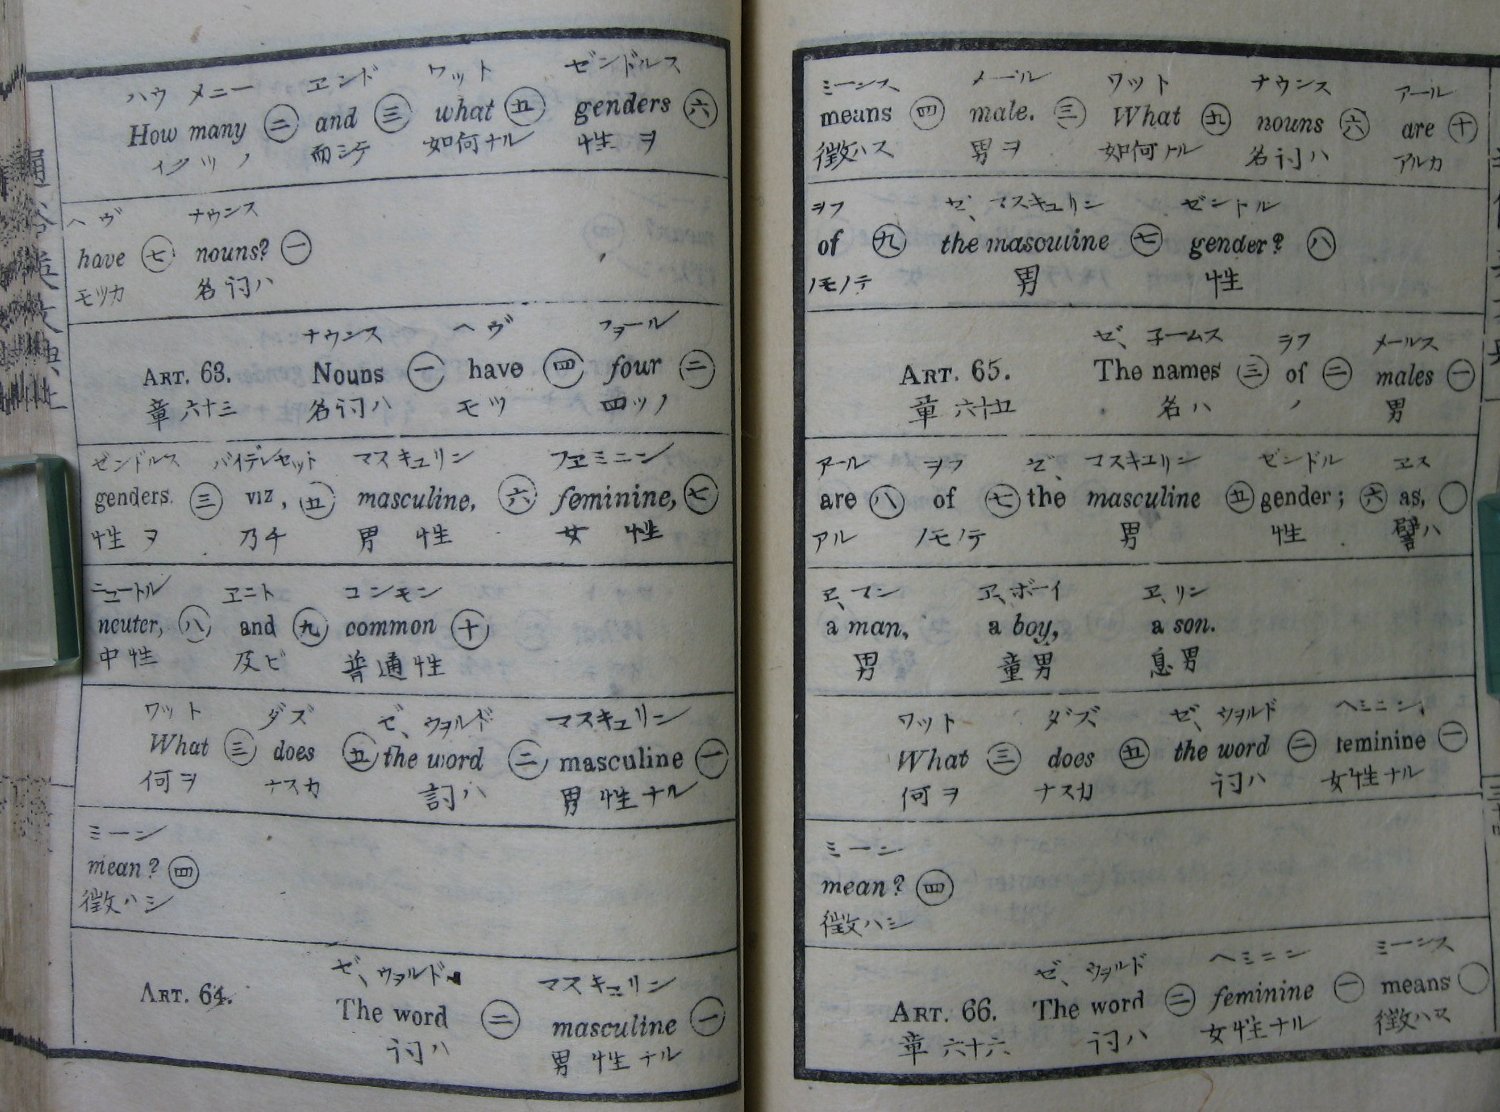 ハウ メニー ヱンド ワット ゼンドルス
How many ㊁ and ㊂ what ㊄ genders ㊅
イクツノ 而シテ 如何ナル 性ヲ
ヘヴ ナウンス
have ㊆ nouns? ㊀
モツカ 名詞ハ
ナウンス ヘヴ フヲール
ART. 63. Nouns ㊀ have ㊃ four ㊁
章 六十三 名詞ハ モツ 四ツノ
ゼンドルス バイデレセット マスキュリン フヱミニン
genders. ㊂ viz, ㊄ masculine, ㊅ feminine, ㊆
性ヲ 乃チ 男性 女性
ニュートル ヱニト コンモン
neuter, ㊇ and ㊈ common ㊉
中性 及ビ 普通性
ワット ダズ ゼ、ウヲルド マスキュリン
What ㊂ does ㊄ the word ㊁ masculine ㊀
何ヲ ナスカ 詞ハ 男性ナル
ミーン
mean? ㊃
徴ハシ
ゼ、ウヲルド マスキュリン
ART. 64. The word ㊁ masculine ㊀
詞ハ 男性ナル
ミーンス メール ワット ナウンス アール
means ㊃ male. ㊂ What ㊄ nouns ㊅ are ㊉
徴ハス 男ヲ 如何ナル 名詞ハ アルカ
ヲフ ゼ、マスキュリン ゼントル
of ㊈ the masculine ㊆ gender? ㊇
ノモノテ 男 性
ゼ、子ームス ヲフ メールス
ART. 65. The names ㊂ of ㊁ males ㊀
章 六十五 名ハ ノ 男
アール ヲフ ゼ、 マスキュリン ゼンドル ヱス
are ㊇ of ㊆ the masculine ㊄ gender; ㊅ as, ◯
アル ノモノテ 男 性 譬ハ
ヱ、マン ヱ、ボーイ ヱ、リン
a man, a boy, a son.
男 童男 息男
ワット ダズ ゼ、ウヲルド ヘミニン、
What ㊂ does ㊄ the word ㊁ feminine ㊀
何ヲ ナスカ 詞ハ 女性ナル
ミーン
mean? ㊃
徴ハシ
ゼ、ウヲルド ヘミニン ミーンス
ART. 66. The word ㊁ feminine ㊀ means ◯
章 六十六 詞ハ 女性ナル 徴ハス